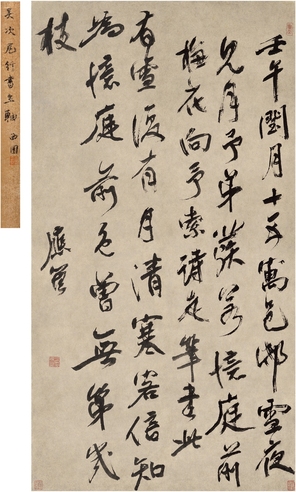 吴次尾行書立軸 西園
壬午閏月十五寓邑邨雪夜
見月予弟若憶庭前
梅花向予索詩走筆書此
有雪復有月清寒客信知
為憶庭前色曾無第幾
枝
應箕